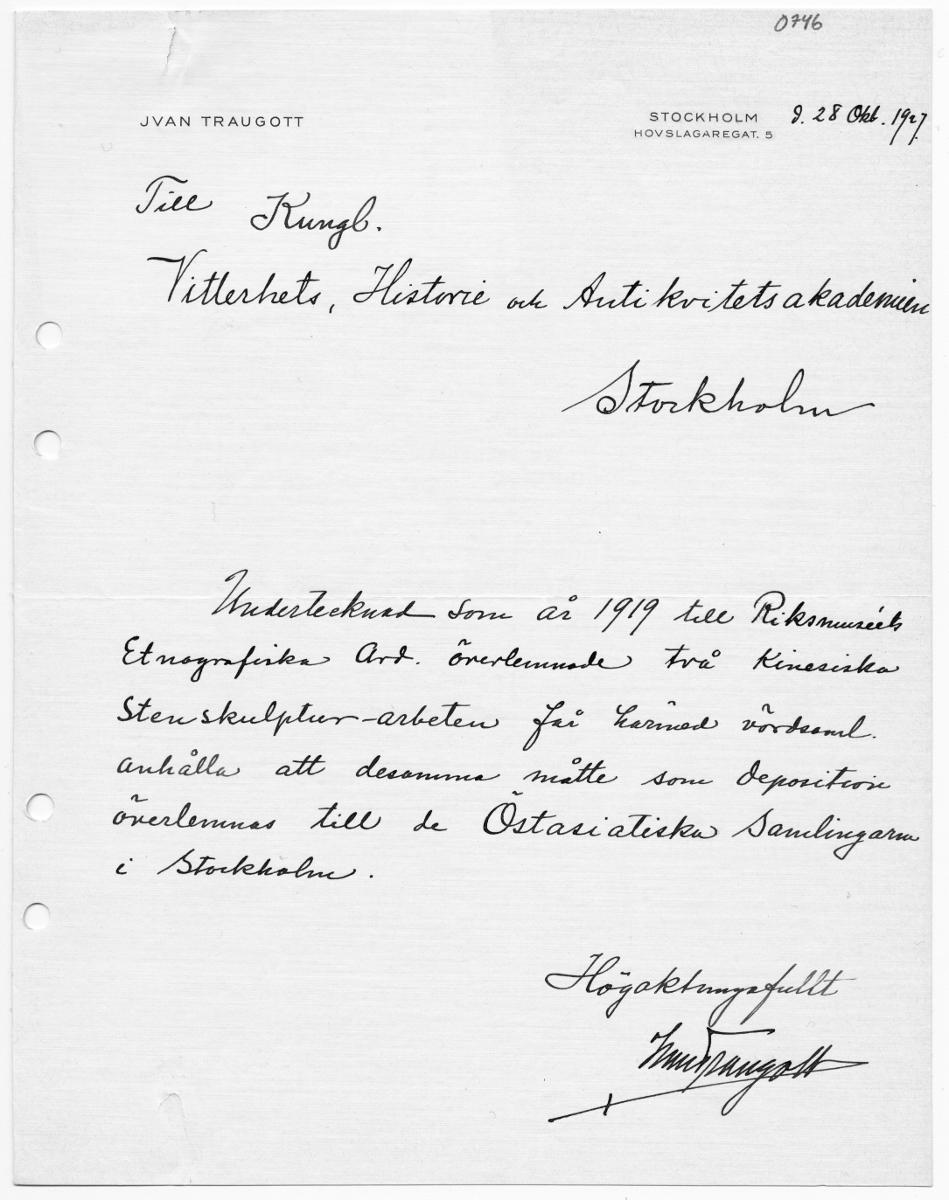 0746
JVAN TRAUGOTT
STOCKHOLM d. 28 Okt. 1927.
HOVSLAGAREGAT. 5
Till Kungl.
Vitterhets, Historie och Antikvitetsakademien
Stockholm
Undertecknad som år 1919 till Riksmuséets
Etnografiska Avd. överlemnade två Kinesiska
Stenskulptur-arbeten får härmed vördsaml.
anhålla att desamma måtte som deposition
överlemnas till de Östasiatiska Samlingarna
i Stockholm.
Högaktningsfullt
Ivan Traugott